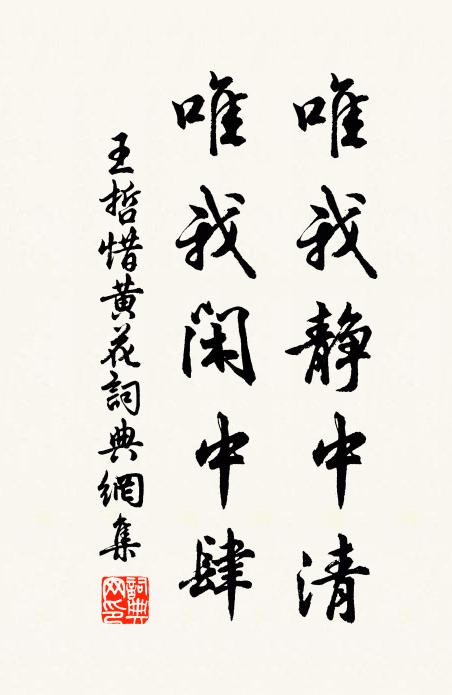 唯我静中清
唯我闲中肆
王哲惜黄花詞典網集
詞典网印